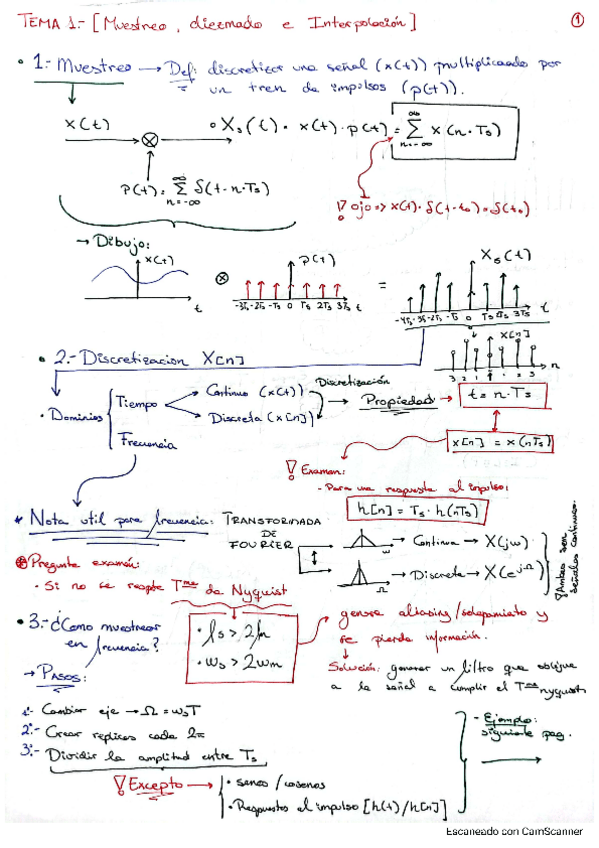 TEMA 1.- [Muestreo, diezmado e Interpolación] ①
• 1.- Muestreo → Def: discretizar una señal (x(t)) multiplicando por
un tren de impulsos (p(t)).
x(t) ⊗ → • Xs(t) = x(t)·p(t) = ∑ x(n·Ts)
n=-∞
p(t) = ∑ δ(t-n·Ts)
n=-∞
¡! ojo => x(t)·δ(t-to) = δ(to)
→ Dibujo:
x(t) ⊗ p(t) = Xs(t)
t
-3Ts -2Ts -Ts 0 Ts 2Ts 3Ts t
-4Ts -3Ts -2Ts -Ts 0 Ts 2Ts 3Ts t
x[n]
3 2 1 0 1 2 3 n
• 2.- Discretizacion X[n]
• Dominios
Tiempo
Continuo (x(t))
Discreta (x[n])
Discretización
→ Propiedad → t = n·Ts
Frecuencia
x[n] = x(nTs)
¡! Examen:
- Para una respuesta al impulso:
h[n] = Ts·h(nTs)
* Nota util para frecuencia: TRANSFORMADA
DE
FOURIER
ω → Continua → X(jω)
Ω → Discreta → X(e^jΩ)
¡Ambas son
señales continuas.
⊛ Pregunta examén:
• Si no se respeta Tma de Nyquist
• fs > 2fm
• ωs > 2ωm
genera aliasing/solapamiento y
se pierde información.
Solución: generar un filtro que obligue
a la señal a cumplir el Tma nyquist
• 3.- ¿Como muestrear
en frecuencia?
→ Pasos:
1º- Cambiar eje → Ω = ωsT
2º- Crear replicas cada 2π
3º- Dividir la amplitud entre Ts
¡! Excepto →
• senos / cosenos
• Respuestas al impulso [h(t)/h[n]]
- Ejemplo:
siguiente pag.
Escaneado con CamScanner